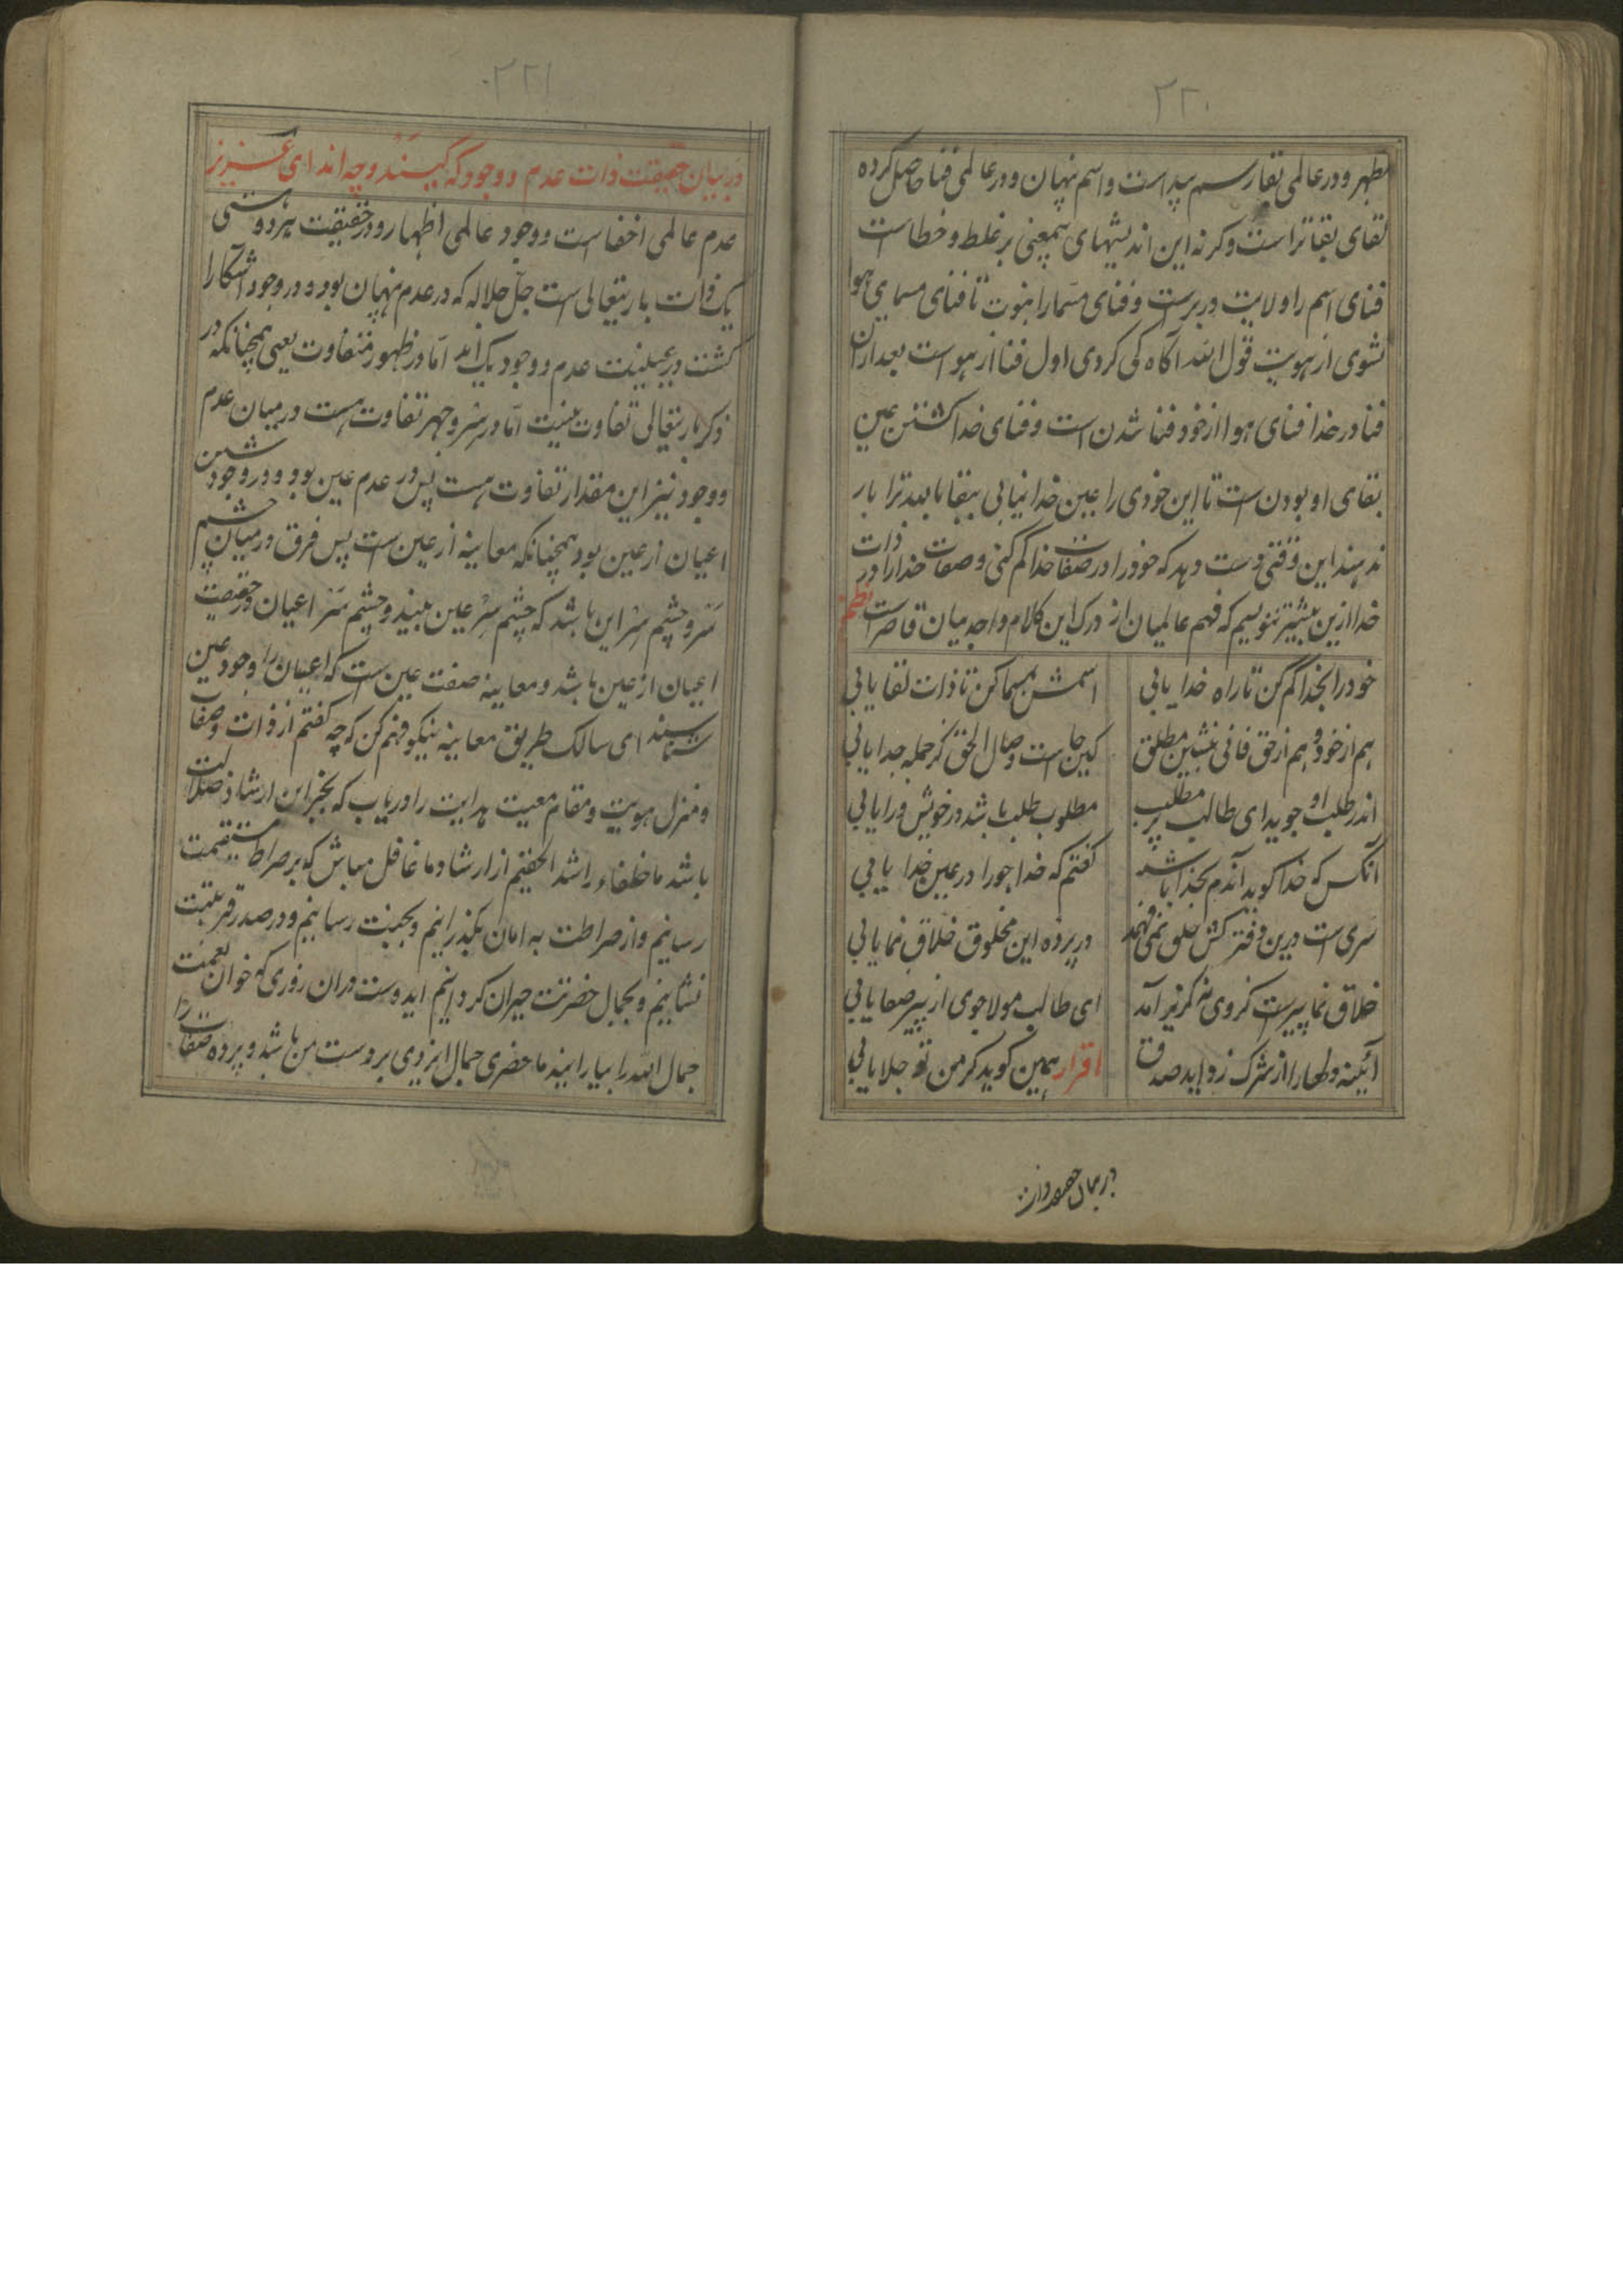 ۲۲۰
مظهر و در عالمی بقا رسم پیداست و اسم پنهان و در عالمی فنا حاصل کرده
بقای بقا تراست و کرنه این اندیشهای بیمعنی بر غلط و خطاست
فنای اسم را ولایت در برست و فنای مسما را نبوت تا فنای مسمای هوا
نشوی از هویت قول الله آکاه کی کردی اول فنا از هو است بعد ازان
فنا در خدا فنای هوا از خود فنا شدن است و فنای خدا کشتن عین
بقای او بودن است تا این خودی را عین خدا نیابی ببقا باید ترا بار
ندهند این وقتی دست دهد که خود را در صفات خدا کم کنی و صفات خدا را در ذات
خدا ازین بیشتر ننویسیم که فهم عالمیان از درک این کلام واجد میان قاصر است نظم
خود را بخدا کم کن تا راه خدا یابی اسمش مسما کن تا ذات لقا یابی
هم از خود و هم از حق فانی بنشین مطلق کین جا است وصال الحق کر جمله جدا یابی
اندر طلب او جوید ای طالب پر مطلب مطلوب طلب باشد در خویش ورا یابی
آنکس که خدا کوید آندم بخدا باشد کفتم که خدا جو را در عین خدا یابی
سری است درین دفتر کش خلق نمی فهمد در پرده این مخلوق خلاق نما یابی
خلاق نما پیرست کز وی نه کریز آمد ای طالب مولا جوی از پیر صفا یابی
آئینه دلها را از شرک زداید صدق اقرار همین کوید کز من تو جلا یابی
در بیان حقیقت ذات
۲۲۱
در بیان حقیقت ذات عدم و وجود که کیستند و چه اند ای عزیز
عدم عالمی اخفا است و وجود عالمی اظهار و در حقیقت هر دو هستی
یک ذات باریتعالی است جل جلاله که در عدم پنهان بود و در وجود آشکارا
کشت در عینیت عدم و وجود یک اند اما در ظهور متفاوت یعنی همچنانکه در
ذکر باریتعالی تفاوت نیست اما در سر و جهر تفاوت هست در میان عدم
و وجود نیز این مقدار تفاوت هست پس در عدم عین بود و در وجود شین
اعیان از عین بود همچنانکه معاینه از عین است پس فرق در میان چشم
سر و چشم سر این باشد که چشم سر عین بیند و چشم سر اعیان در حقیقت
اعیان از عین باشد و معاینه صفت عین است که اعیان را وجود عین
شناسند ای سالک طریق معاینه نیکو فهم کن که چه کفتم از ذات و صفات
و منزل هویت و مقام معیت هدایت را دریاب که بجز این ارشاد ضلالت
باشد ما خلفاء راشد الحقیم از ارشاد ما غافل مباش که بر صراط مستقیمت
رسانیم و از صراطت به امان بکذرانیم و بجنت رسانیم و در صدر قربتت
نشانیم و بجمال حضرتت حیران کردانیم ایدوست دران روزی که خوان نعمت
جمال الله را بیارایند ما حضری جمال ایزدی بر دست من باشد و پرده صفات را